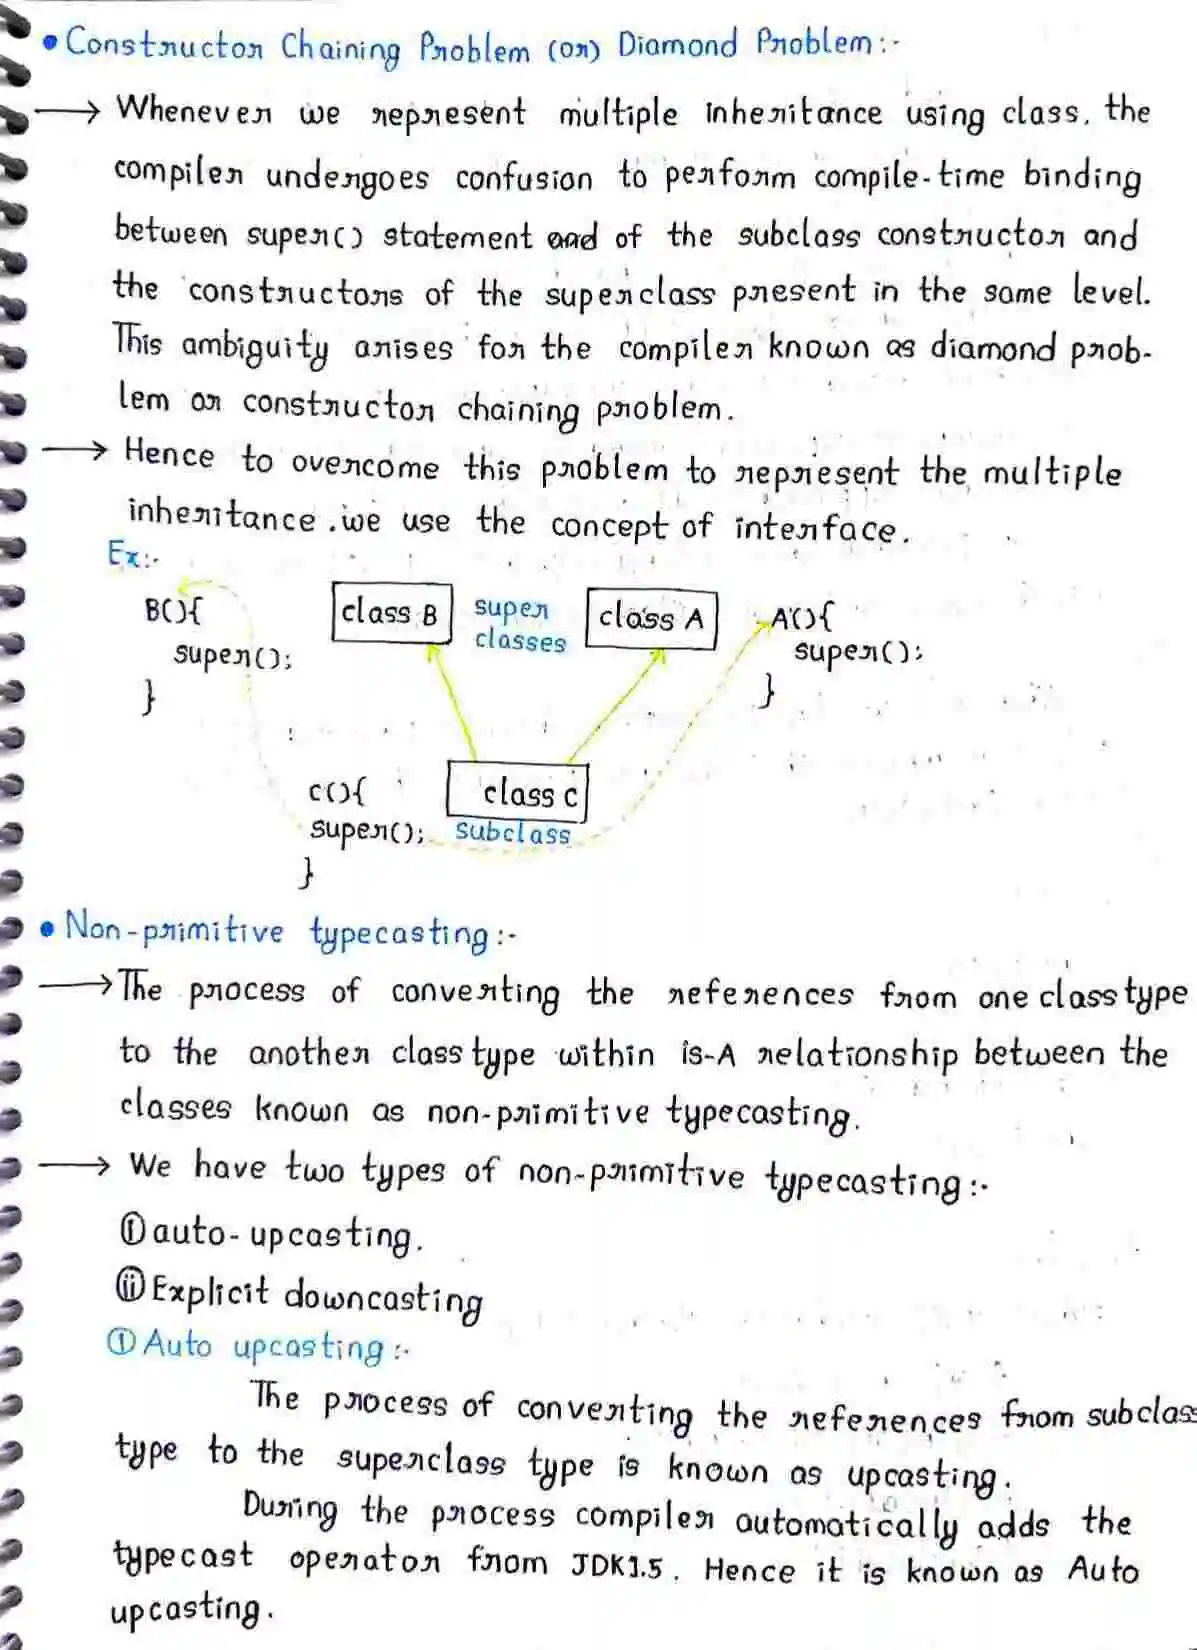 • Constructor Chaining Problem (or) Diamond Problem:-
→ Whenever we represent multiple inheritance using class, the
compiler undergoes confusion to perform compile-time binding
between super() statement of the subclass constructor and
the constructors of the superclass present in the same level.
This ambiguity arises for the compiler known as diamond prob-
lem or constructor chaining problem.
→ Hence to overcome this problem to represent the multiple
inheritance. we use the concept of interface.
Ex:-
B(){
super();
}
class B
super
classes
class A
A(){
super();
}
C(){
super();
}
class C
subclass
• Non-primitive typecasting:-
→ The process of converting the references from one class type
to the another class type within is-A relationship between the
classes known as non-primitive typecasting.
→ We have two types of non-primitive typecasting:-
(i) auto-upcasting.
(ii) Explicit downcasting
(1) Auto upcasting:-
The process of converting the references from subclass
type to the superclass type is known as upcasting.
During the process compiler automatically adds the
typecast operator from JDK1.5. Hence it is known as Auto
upcasting.